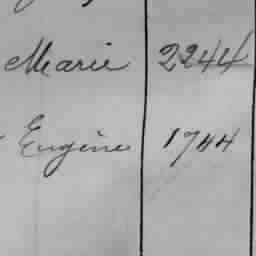 Marie 2244
Eugène 1744